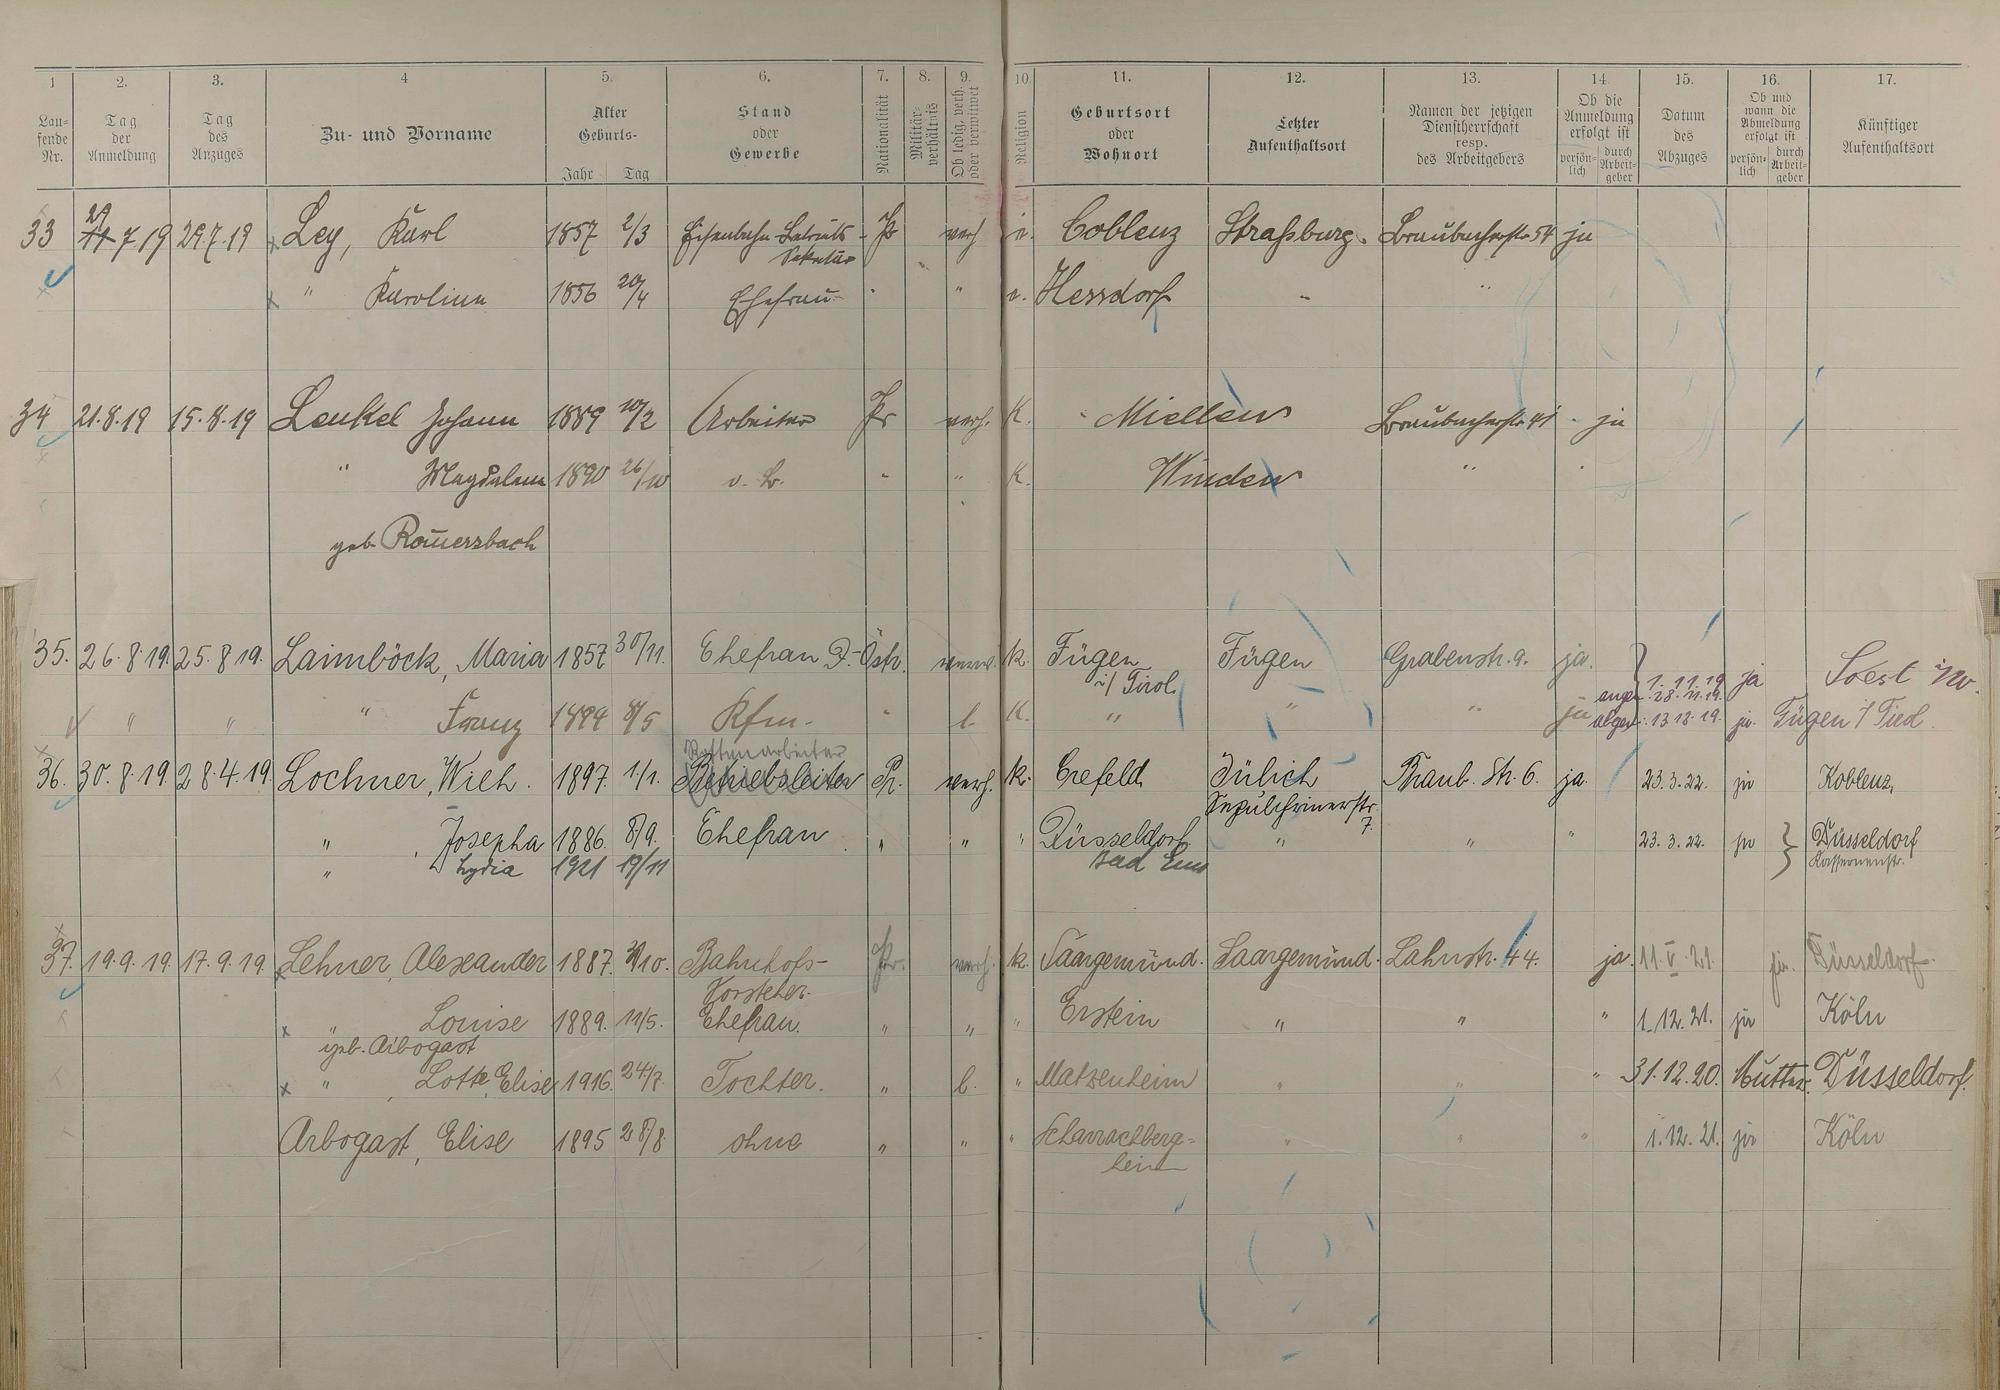 1 2. 3. 4 5. 6. 7. 8. 9. 10. 11. 12. 13. 14 15. 16. 17.
Lau-fende Nr. Tag der Anmeldung Tag des Anzuges Zu- und Vorname Alter Geburts- Jahr Tag Stand oder Gewerbe Nationalität Militär-verhältnis Ob ledig, verh. oder verwitwet Religion Geburtsort oder Wohnort Letzter Aufenthaltsort Namen der jetzigen Dienstherrschaft resp. des Arbeitgebers Ob die Anmeldung erfolgt ist persön-lich durch Arbeit-geber Datum des Abzuges Ob und wann die Abmeldung erfolgt ist persön-lich durch Arbeit-geber Künftiger Aufenthaltsort
33 29 7 19 29.7.19 Ley, Karl 1857 2/3 Eisenbahn-Betriebs- Pr verh Coblenz Straßburg. Braubacherstr 54 ja
Sekretär
" Karolina 1856 20/4 Ehefrau " " Hessdorf " "
34 21.8.19 15.8.19 Lenkel Johann 1889 10/2 Arbeiter Pr verh. K. Miellen Braubacherstr 41 ja
" Magdalena 1890 26/10 " " K. Winden "
geb. Rauersbach
35. 26.8.19. 25.8 19. Laimböck, Maria 1857 30/11. Ehefrau Östr. verw. k. Fügen Fügen Grabenstr. 9. ja. 1.11.19 ja Soest i/W.
i/ Tirol. 28.11.19.
" " " Franz 1894 8/5 Kfm. " l. K. " " " ja 13.12.19. ja. Fügen i/ Tirol.
36. 30.8.19 28.4.19. Lochner, Wilh. 1897. 1./1. Betriebsleiter Pr. verh. k. Crefeld Jülich Thaub. Str. 6. ja 23.3.22. ja Koblenz,
7.
" Josepha 1886. 8/9. Ehefrau " " " Düsseldorf " " " 23.3.22. ja Düsseldorf
" Lydia 1921 19/11 Bad Ems Kasernenstr.
37. 19.9.19. 17.9.19 Lehner, Alexander 1887. /10. Bahnhofs- Pr. verh. k. Saargemünd. Saargemünd. Lahnstr. 44. ja. 11.V.21. Düsseldorf.
Vorsteher.
Louise 1889. 11/5. Ehefrau. " " " Erstein " " " 1.12.21. ja Köln
geb. Arbogast
" Lotte Elise 1916. 24/7. Tochter. " l. " Matzenheim " " " 31.12.20. Mutter. Düsseldorf.
Arbogast, Elise 1895 28/8. ohne " " " Scharrachberg- " " " 1.12.21. ja Köln
heim